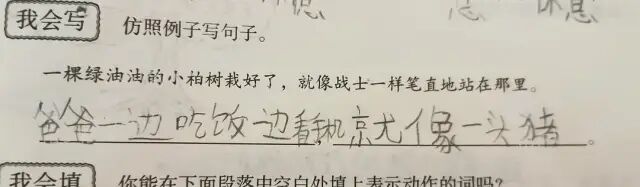 休息
我会写 仿照例子写句子。
一棵绿油油的小柏树栽好了，就像战士一样笔直地站在那里。
爸爸一边吃饭一边看手机京尤像一头猪。
我会填 你能在下面段落中空白处填上表示动作的词吗？